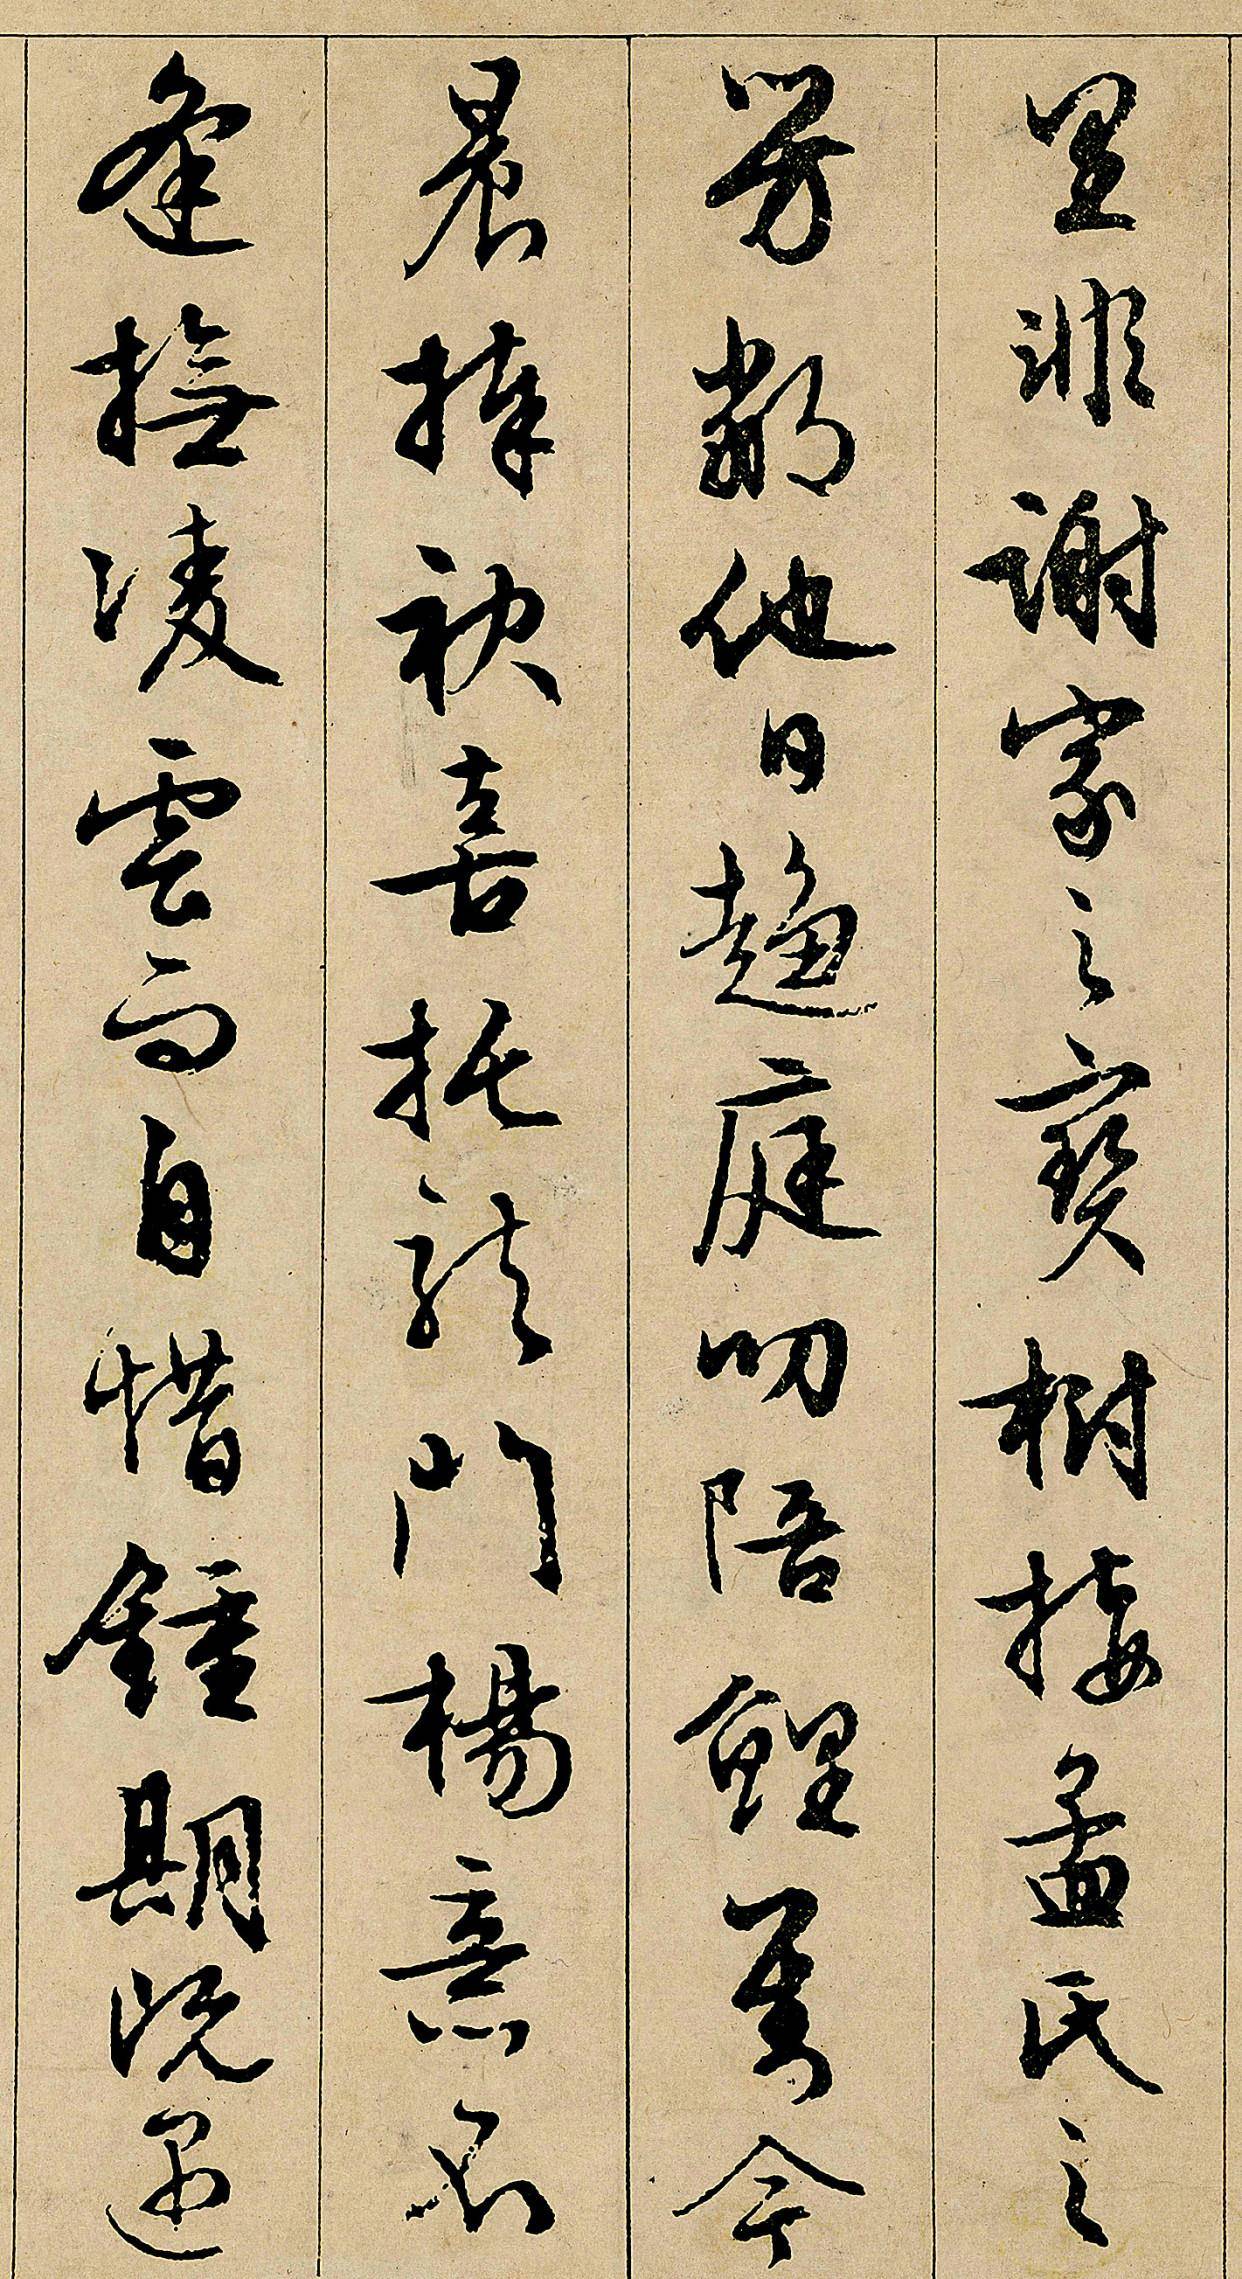 里非謝家之寶樹接孟氏之
芳鄰他日趨庭叨陪鯉對今
晨捧袂喜托龍門楊意不
逢撫凌雲而自惜鍾期既遇